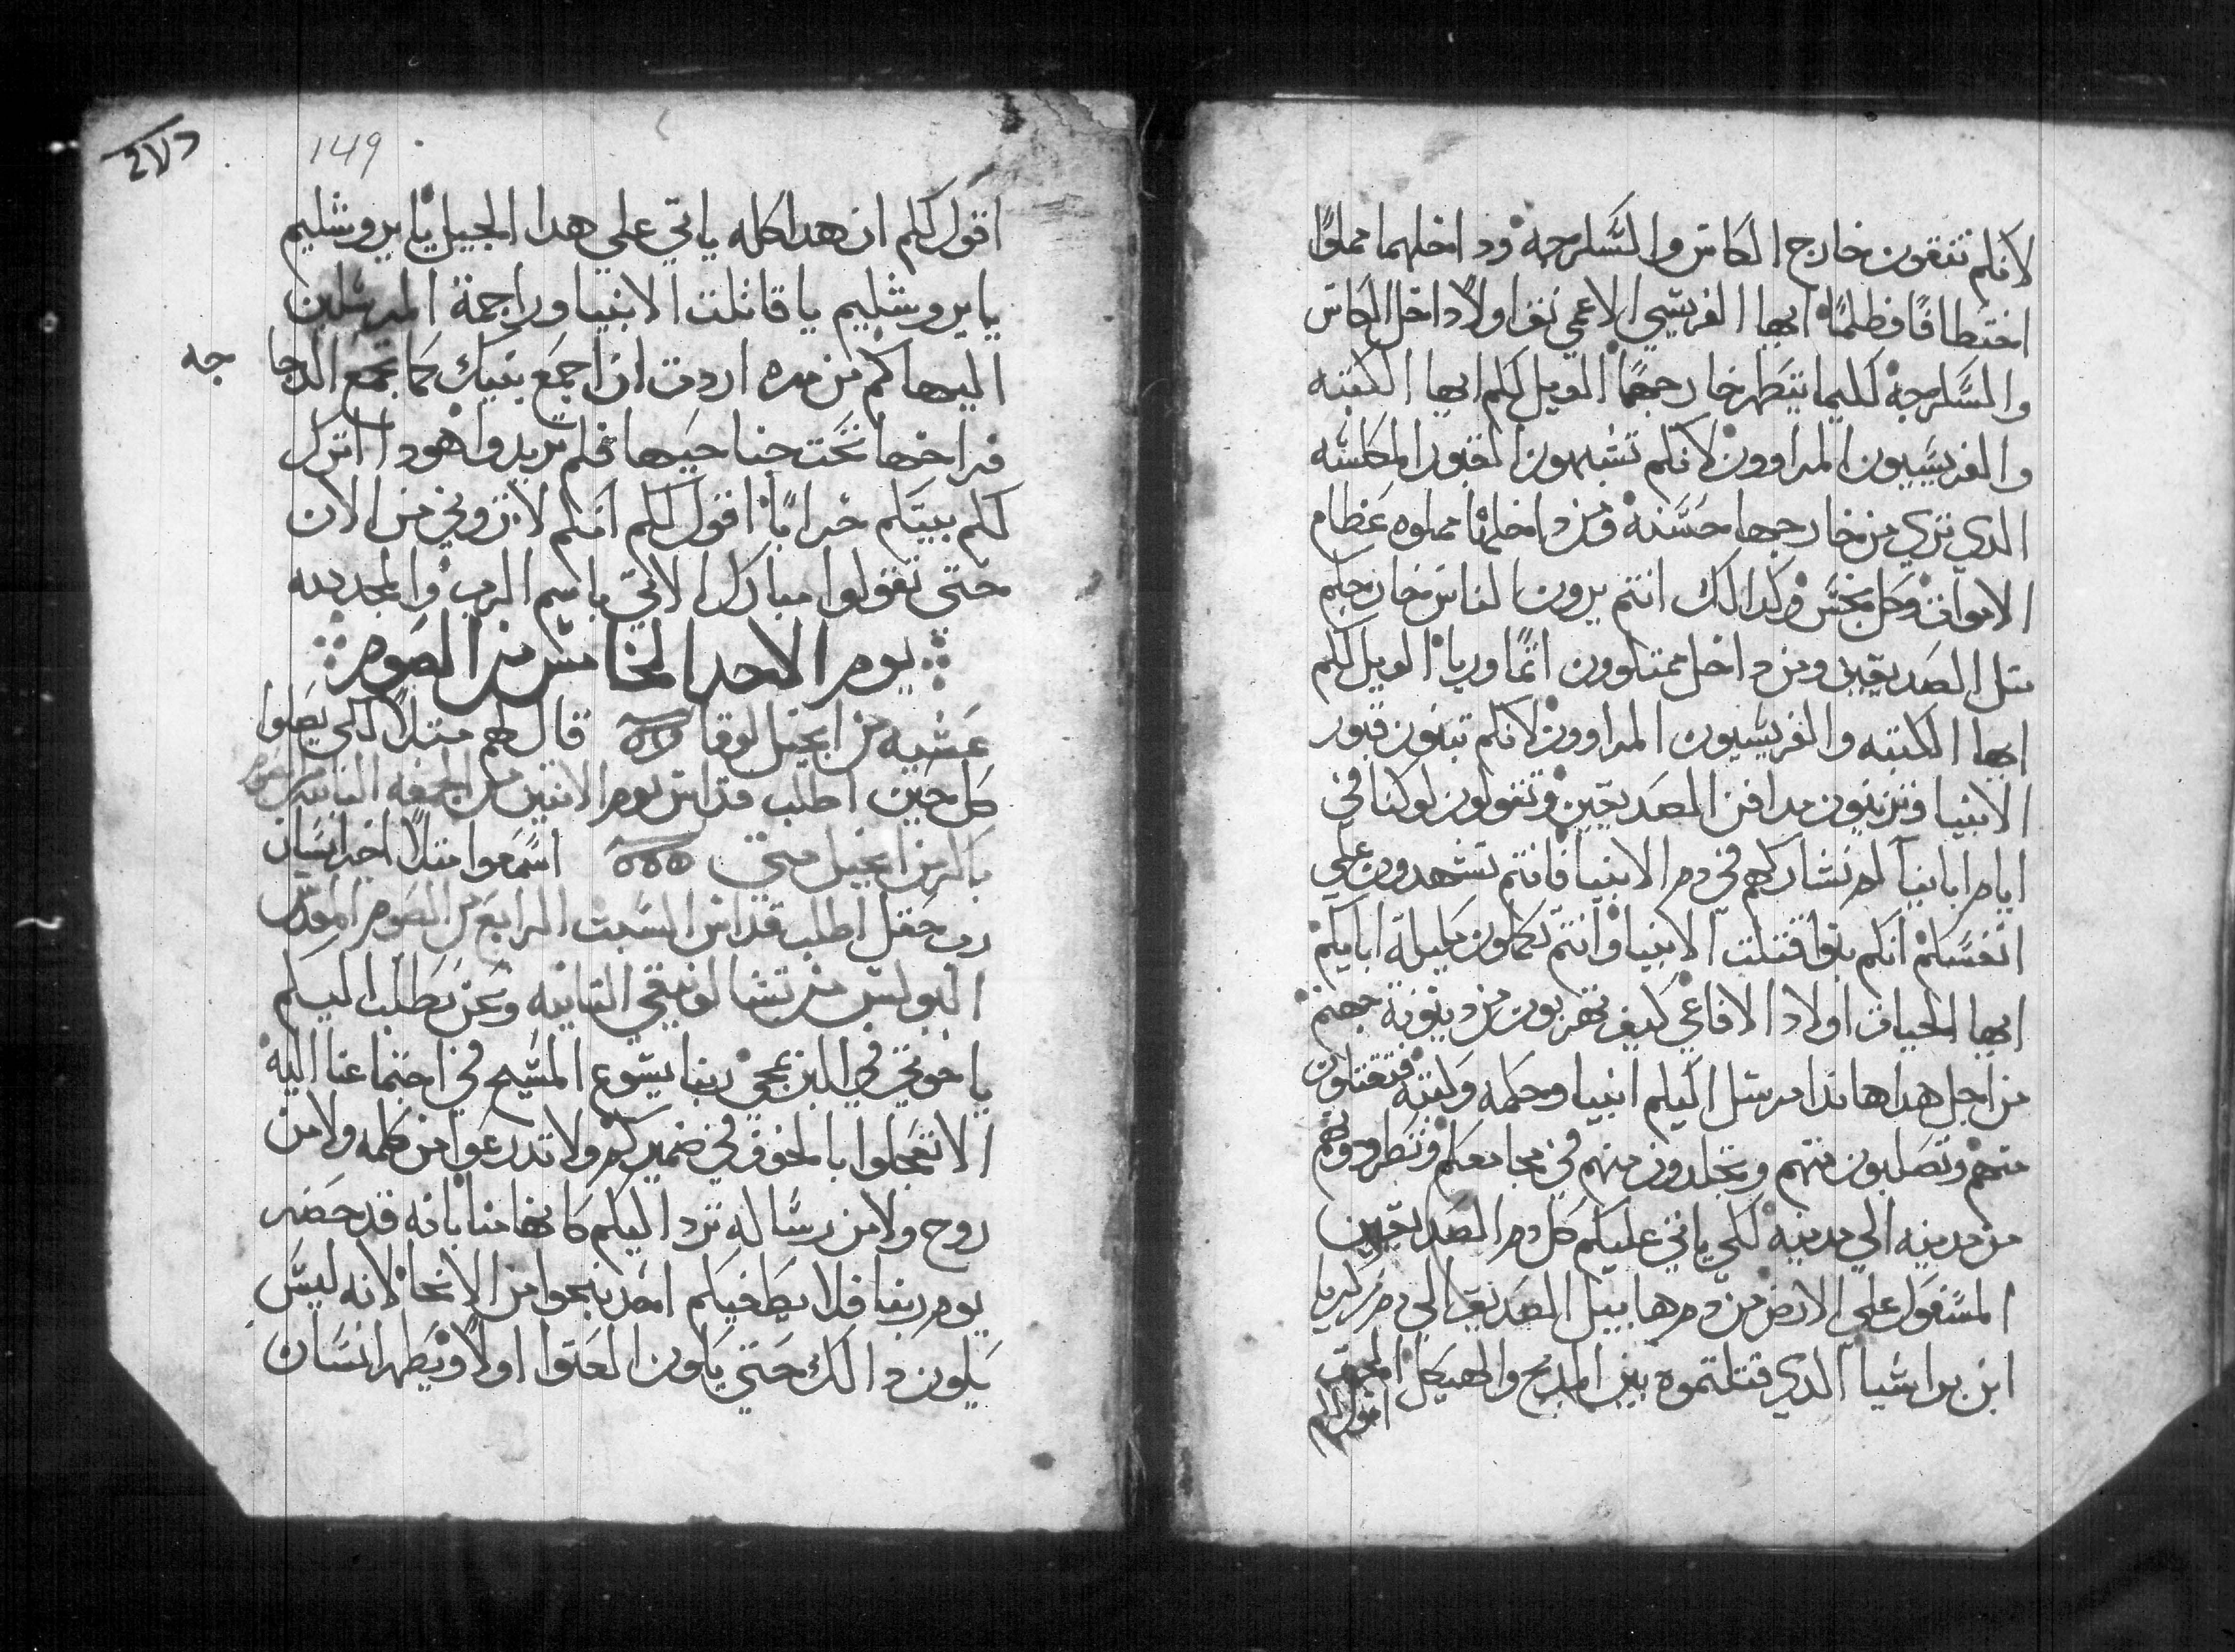 لانكم تنقون خارج الكاس والسكرجه وداخلهما مملوًا
اختطافًا وظلمًا ايها الفريسي الاعمي نق اولًا داخل الكاس
والسكرجه لكيما يتطهر خارجهما الويل لكم ايها الكتبه
والفريسيون المراوون لانكم تشبهون القبور المكلسه
الدي تري من خارجها حسنه ومن داخلها مملوه عظام
الاموات وكل نجس وكدالك انتم يرون الناس خارجكم
متل الصديقين ومن داخل ممتلوون اتمًا وريا الويل لكم
ايها الكتبه والفريسيون المراوون لانكم تبنون قبور
الانبيا وتزينون مدافن الصديقين وتقولون لو كنا في
ايام ابابنا لم نشاركهم في دم الانبيا فانتم تشهدون علي
انفسكم انكم بنو قتلت الانبيا وانتم تكملون مكيلة ابايكم
ايها الحيات اولاد الافاعي كيف تهربون من دينونة جهنم
من اجل هدا هاندا مرسل اليكم انبيا وحكمه وكتبه فتقتلون
منهم وتصلبون منهم وتجلدون منهم في مجامعكم وتطردونهم
من مدينه الي مدينه لكي ياتي عليكم كل دم الصديقين
المسفوك علي الارض من دم هابيل الصديق الي دم زكريا
ابن براشيا الدي قتلتموه بين المدبح والهيكل الحق
اقول لكم
149
اقول لكم ان هدا كله ياتي علي هدا الجيل يا يروشليم
يا يروشليم يا قاتلت الانبيا وراجمة المرسلين
اليها كم من مره اردت ان اجمع بنيك كما تجمع الدجا جه
فراخها تحت جناحيها فلم تريدوا هودا اترك
لكم بيتكم خرابًا اقول لكم انكم لا تروني من الان
حتي تقولوا مبارك الاتي باسم الرب والمجد لله
يوم الاحد الخامس من الصوم
عشيه من انجيل لوقا قال لهم متلًا لكي يصلوا
كل حين اطلب قداس يوم الاتنين من الجمعه التانيه من صوم
باكر من انجيل متي اسمعوا متلًا اخر انسان
رب حقل اطلب قداس السبت الرابع من الصوم المقدس
البولس من تسالونيقي التانيه ونحن نطلب اليكم
يا خوتي في اللين بمجي ربنا يسوع المسيح في اجتماعنا اليه
الا تعجلوا بالخوف في ضميركم ولا تدرعوا من كلمه ولا من
روح ولا من رساله ترد اليكم كانها منا بانه قد حضر
يوم ربنا فلا يطغيكم احد بنحوا من الانحا لانه ليس
يكون دالك حتي يكون العتوا اولًا ويظهر انسان